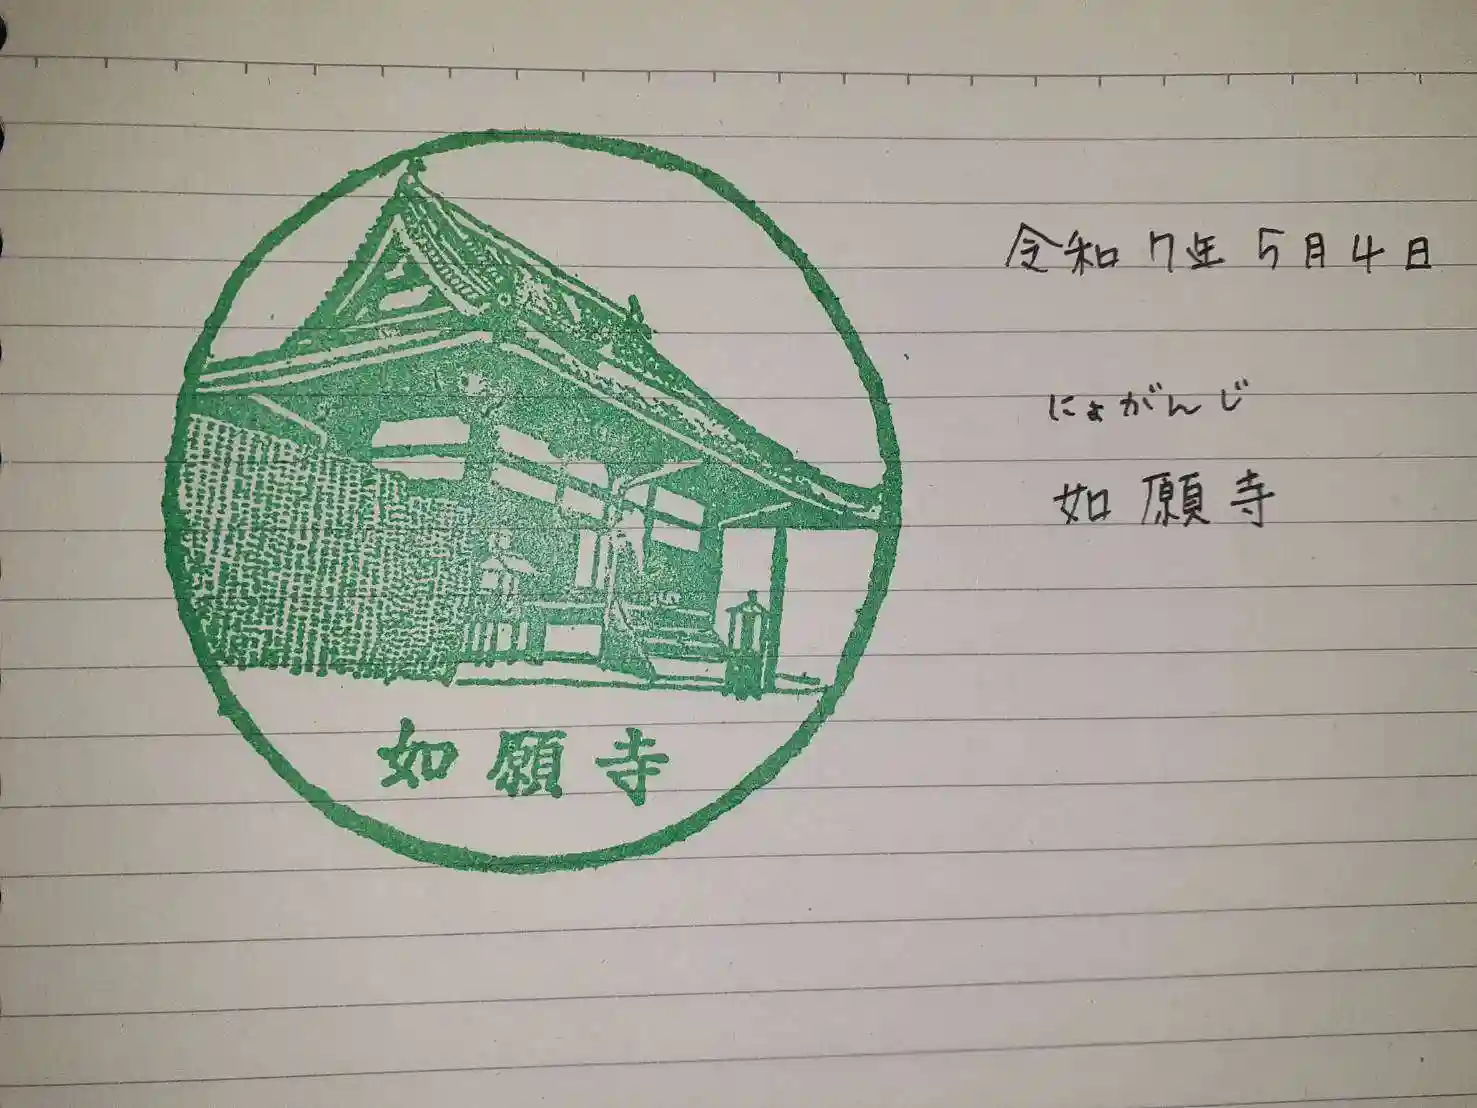 令和7年5月4日
にょがんじ
如願寺
如願寺